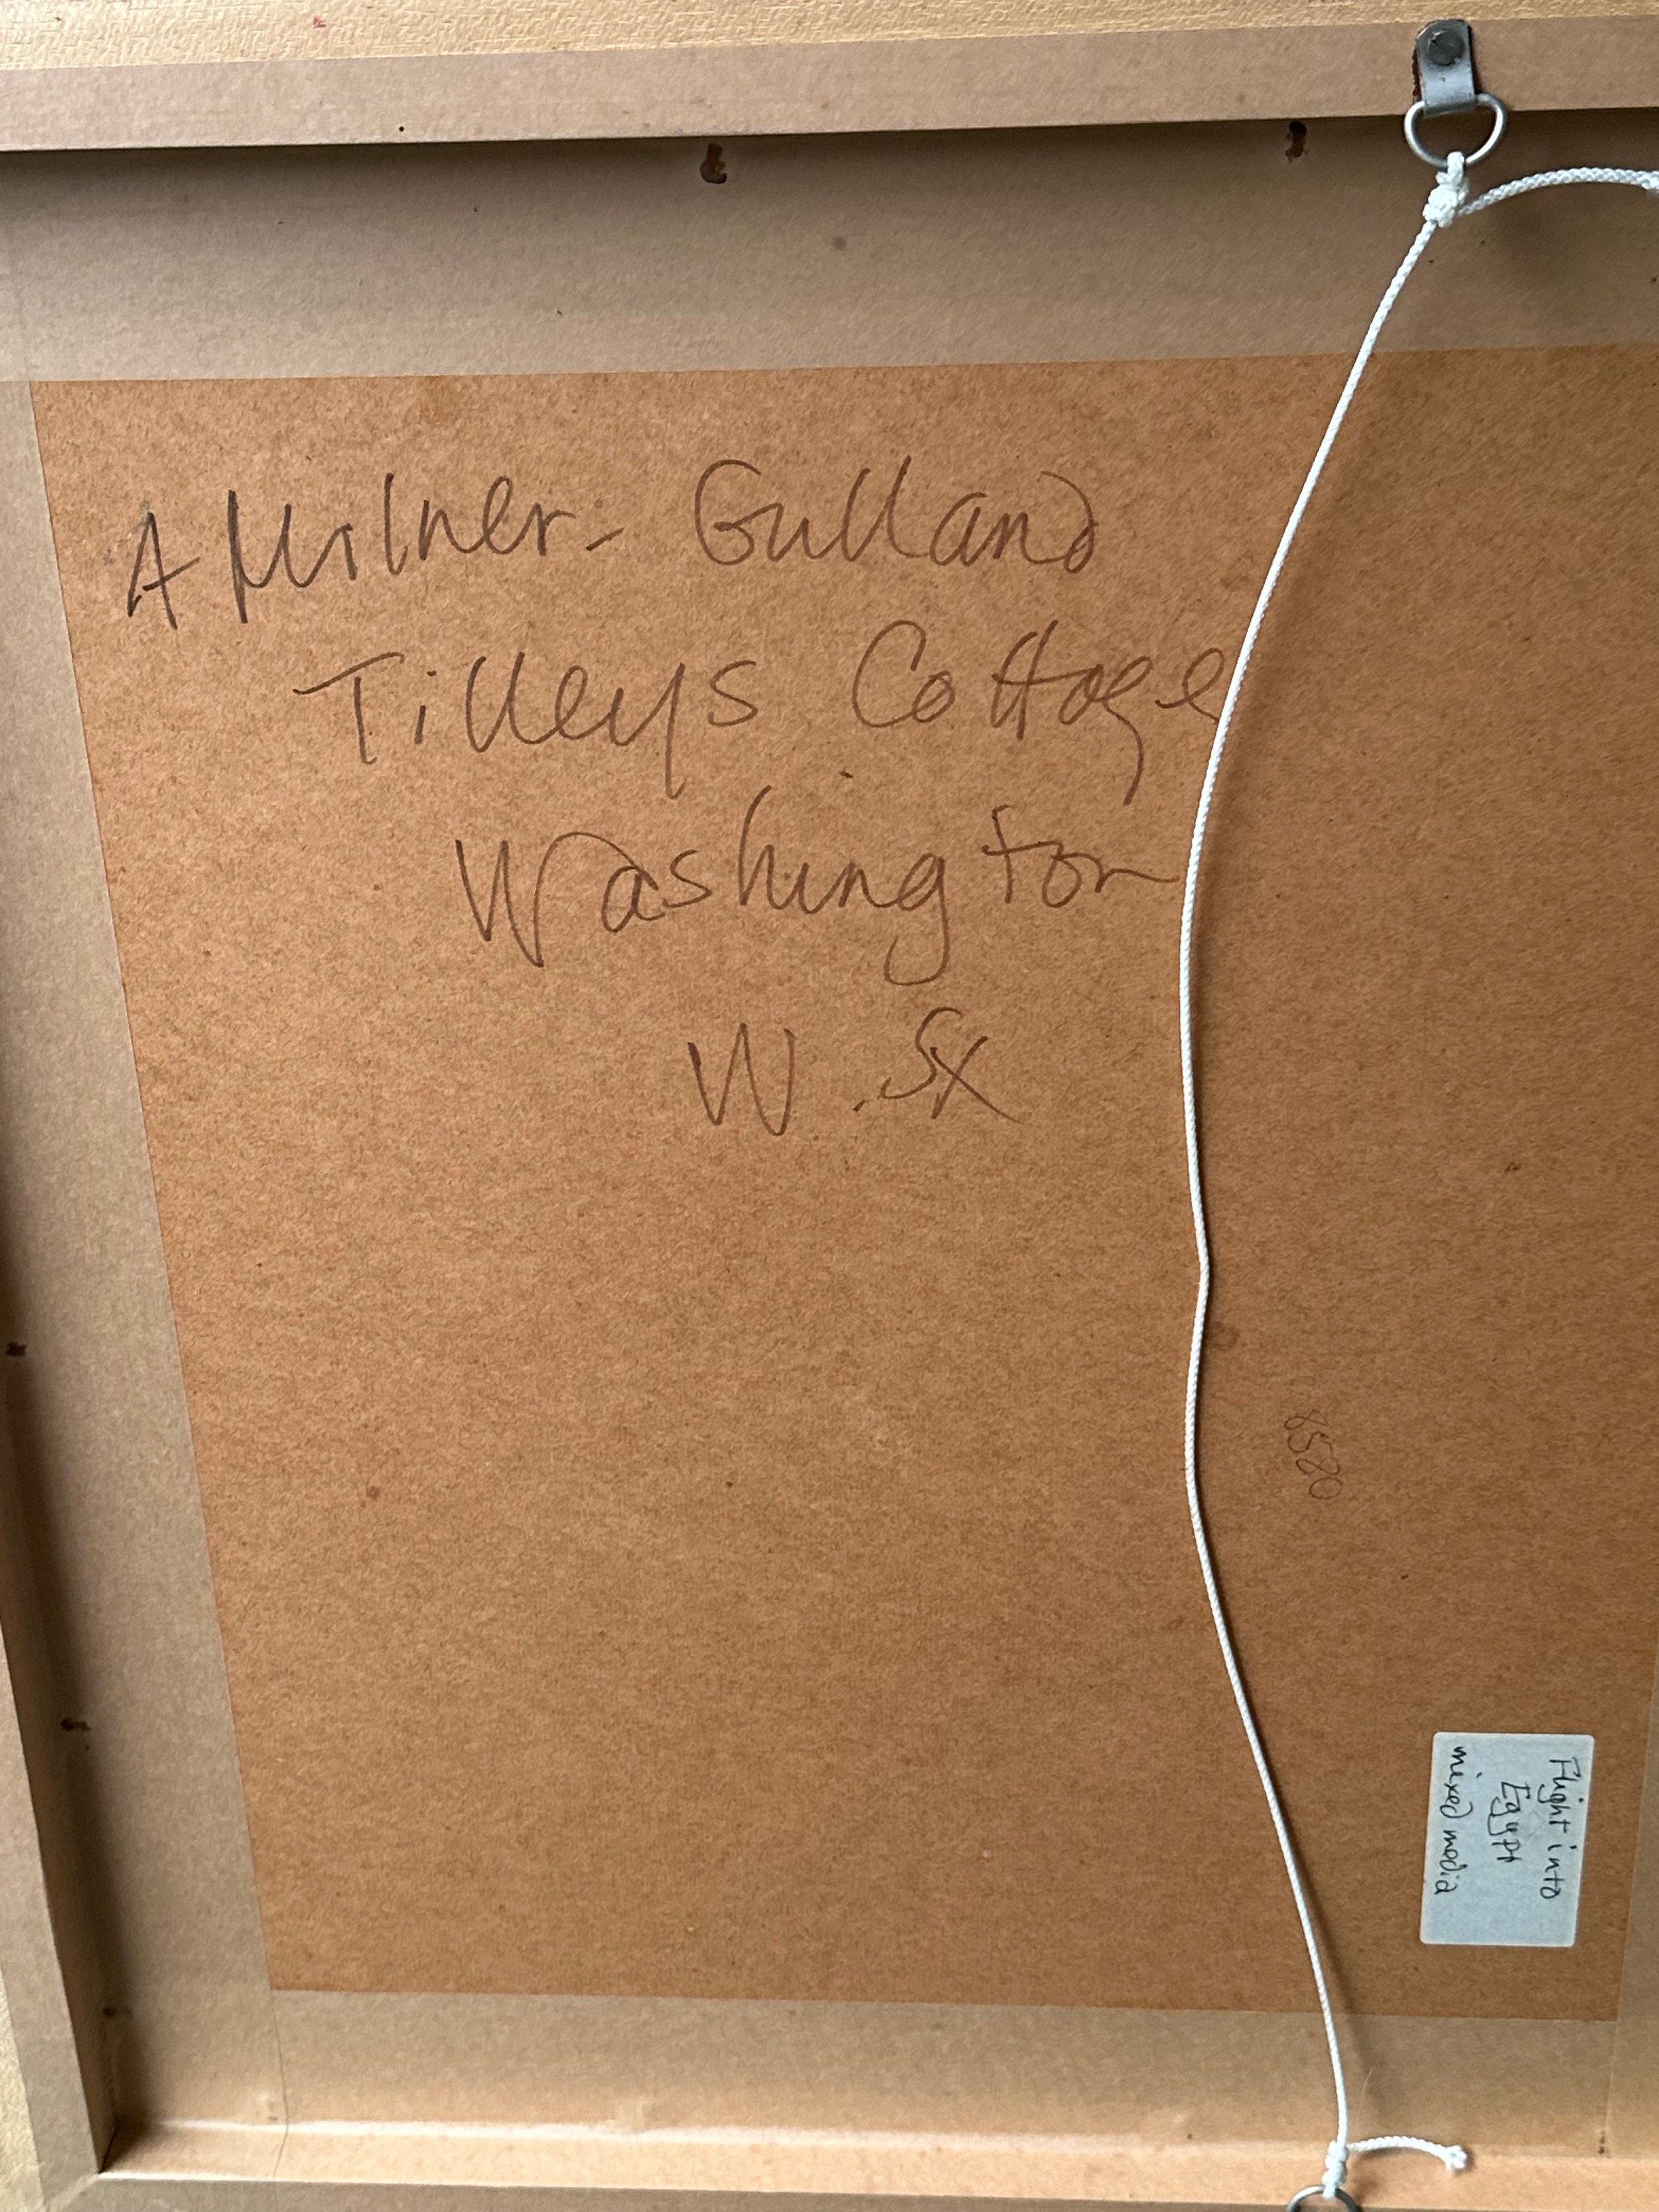 A Milner-Gulland
Tilleys Cottage
Washington
W. Sx
8580
Flight into
Egypt
mixed media